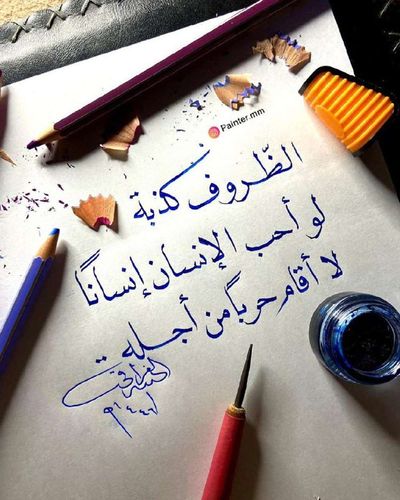 Painter.mm
الظّروف كذبة
لو أحب الإنسان إنساناً
لا أقام حرباً من أجله